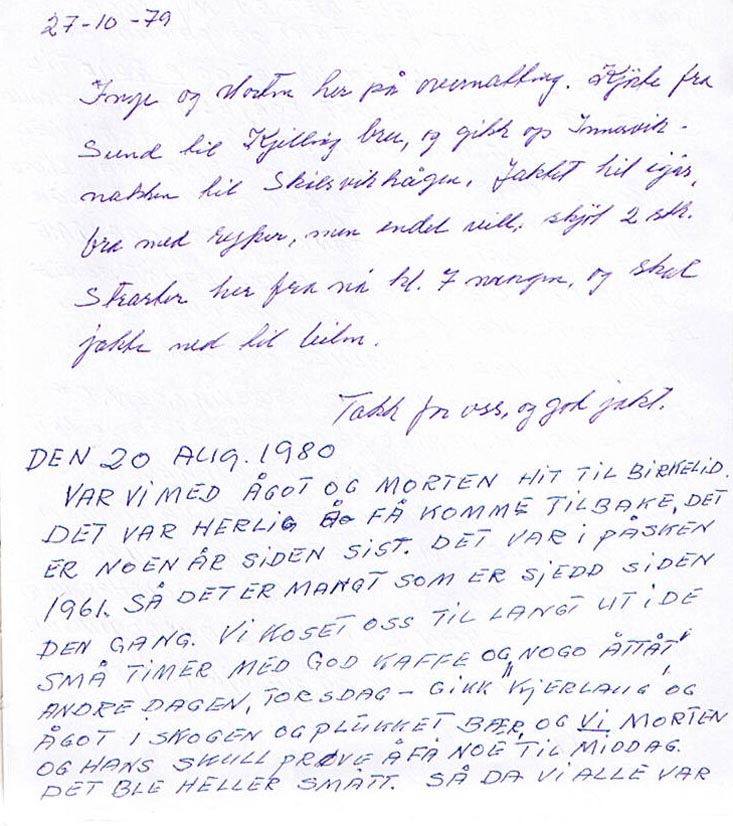 27-10-79
Inge og Morten her på overnatting. Kjørte fra
Sund til Kjelling bru, og gikk op Innervik-
nakken til Skilsvikhågen. Jaktet hit igår,
bra med ryper, men endel vill, skjøt 2 stk.
Starter her fra nå kl. 7 morgen, og skal
jakte ned til bilen.
Takk for oss, og god jakt.
DEN 20 AUG. 1980
VAR VI MED ÅGOT OG MORTEN HIT TIL BIRKELID.
DET VAR HERLIG Å FÅ KOMME TILBAKE, DET
ER NOEN ÅR SIDEN SIST. DET VAR I PÅSKEN
1961. SÅ DET ER MANGT SOM ER SJEDD SIDEN
DEN GANG. VI KOSET OSS TIL LANGT UT I DE
SMÅ TIMER MED GOD KAFFE OG "NOGO ÅTTÅT"
ANDRE DAGEN, TORSDAG - GIKK KJERLAUG OG
ÅGOT I SKOGEN OG PLUKKET BÆR, OG VI MORTEN
OG HANS SKULL PRØVE Å FÅ NOE TIL MIDDAG.
DET BLE HELLER SMÅTT. SÅ DA VI ALLE VAR